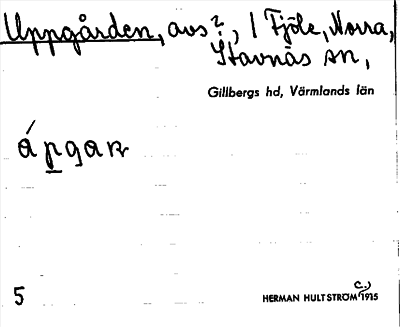 Uppgården, avs?, / Fjöle, Norra,
Stavnäs sn,
Gillbergs hd, Värmlands län
ápgaꞃ
5
HERMAN HULTSTRÖM c.) 1915